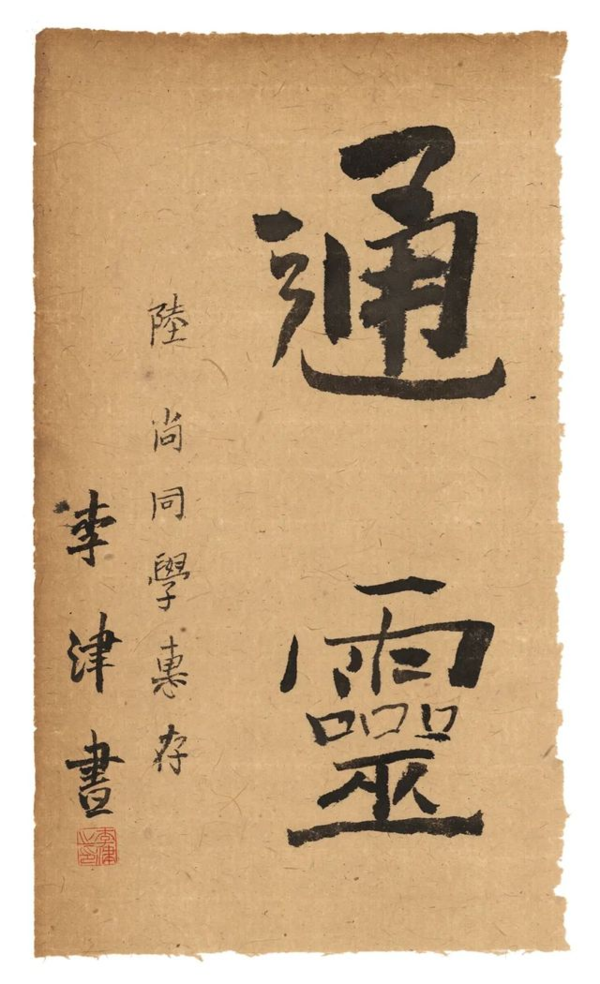 通靈
陸尚同學惠存
李津書
李津之印